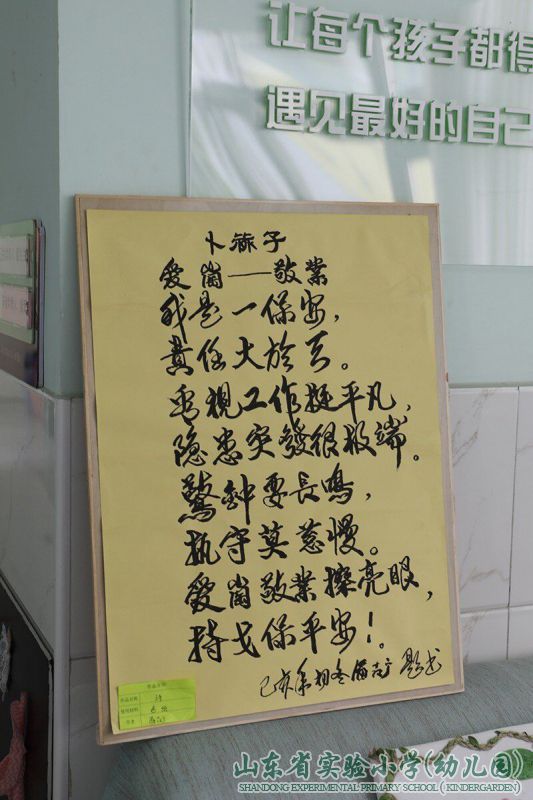 让每个孩子都得
遇见最好的自己
卜算子
爱崗——敬業
我是一保安,
責任大於天。
重視工作挺平凡,
隐患突發很极端。
驚钟要長鳴,
执守莫怠慢。
爱崗敬業擦亮眼,
持戈保平安!
己亥年初冬 题书
作品名称
诗
使用材料
作者
山东省实验小学(幼儿园)
SHANDONG EXPERIMENTAL PRIMARY SCHOOL ( KINDERGARDEN)